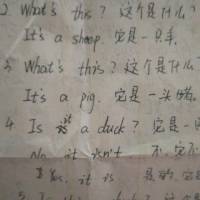 2 What's this? 这个是什么?
It's a sheep. 它是一只羊.
3 What's this? 这个是什么
It's a pig. 它是一头猪.
4 Is it a duck? 它是一
No, it isn't 不,它不
Yes, it is. 是的,它是